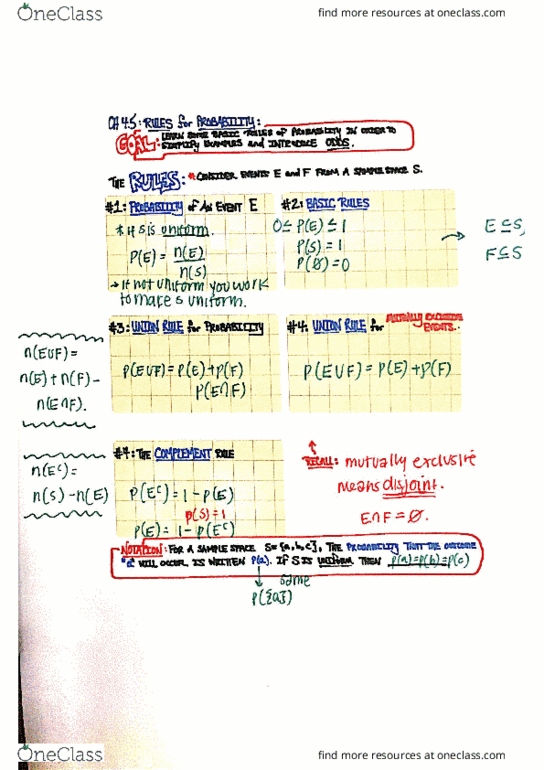 OneClass
find more resources at oneclass.com
CH 4.5: RULES for PROBABILITY:
GOAL: LEARN SOME BASIC RULES OF PROBABILITY IN ORDER TO
SIMPLIFY EXAMPLES and INTRODUCE ODDS.
THE RULES: *CONSIDER EVENTS E and F FROM A SAMPLE SPACE S.
#1: PROBABILITY of AN EVENT E
* if S is uniform.
P(E) = n(E)
n(S)
→ if not uniform you work
to make S uniform.
#2: BASIC RULES
0 ≤ P(E) ≤ 1
P(S) = 1
P(Ø) = 0
→ E ⊆ S,
F ⊆ S
#3: UNION RULE for PROBABILITY
P(E∪F) = P(E) + P(F)
P(E∩F)
#4: UNION RULE for MUTUALLY EXCLUSIVE
EVENTS.
P(E∪F) = P(E) + P(F)
n(E∪F) =
n(E) + n(F) –
n(E∩F).
#4: THE COMPLEMENT RULE
P(Eᶜ) = 1 – P(E)
P(S) = 1
P(E) = 1 – P(Eᶜ)
n(Eᶜ) =
n(S) – n(E)
RECALL: mutually exclusive
means disjoint.
E∩F = Ø.
NOTATION: FOR A SAMPLE SPACE S = {a, b, c}, THE PROBABILITY THAT THE OUTCOME
"a" WILL OCCUR IS WRITTEN P(a). IF S IS UNIFORM THEN P(a) = P(b) = P(c)
same
P({a})
OneClass
find more resources at oneclass.com